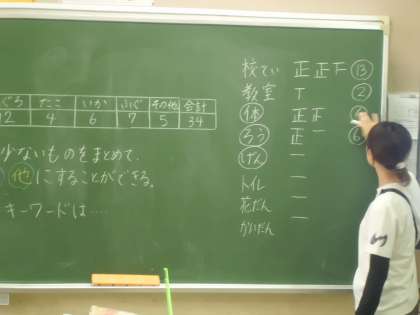 ぐろ たこ いか ふぐ その他 合計
12 4 6 7 5 34
少ないものをまとめて、
他にすることができる。
キーワードは‥‥
校てい 正正下 ⑬
教室 丅 ②
体 正
ろう 正一
げん 一
トイレ 一
花だん 一
かいだん 一